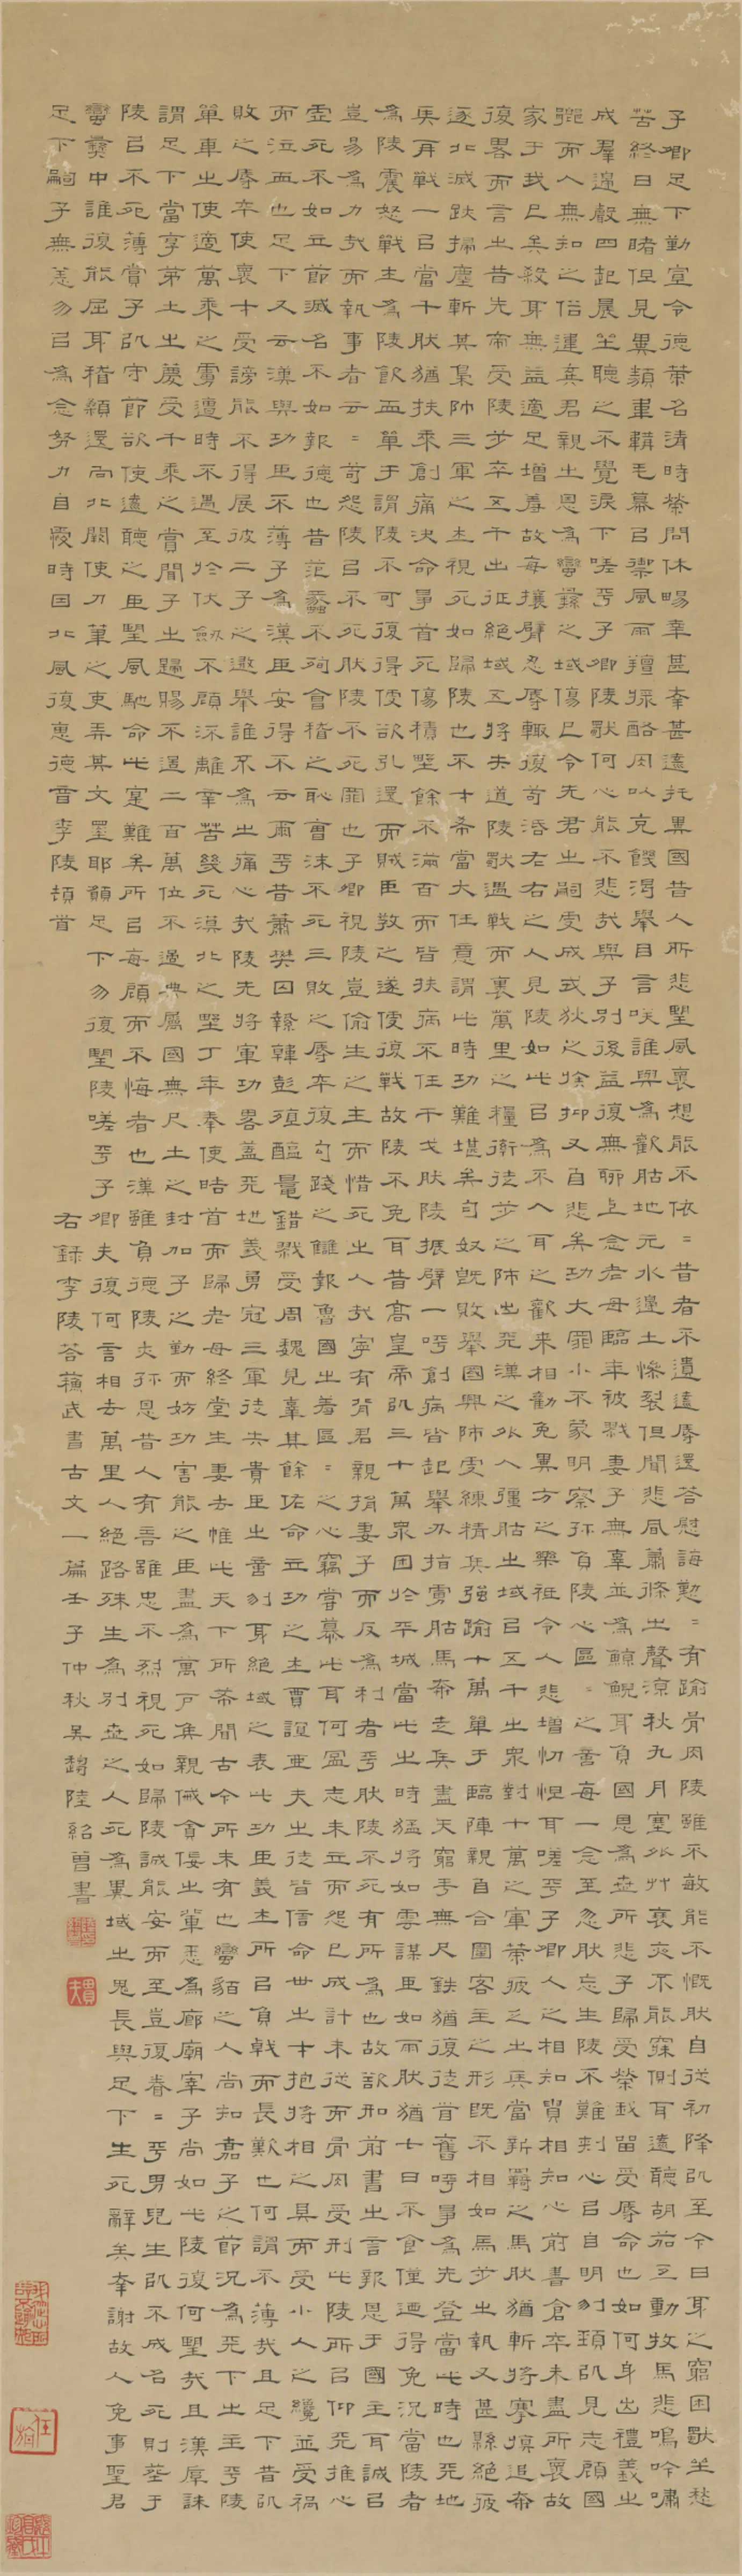 子卿足下勤宣令德策名清時榮問休暢幸甚幸甚遠托異國昔人所悲望風懷想能不依=昔者不遺遠辱還答慰誨懃=有踰骨肉陵雖不敏能不慨然自從初降以至今日身之窮困獨坐愁
苦終日無睹但見異類韋韝毛幕以禦風雨羶酪肉以充饑渴舉目言笑誰與為歡胡地元水邊土慘裂但聞悲風蕭條之聲涼秋九月塞外草衰夜不能寐側耳遠聽胡笳互動牧馬悲鳴吟嘯
成羣邊聲四起晨坐聽之不覺淚下嗟乎子卿陵獨何心能不悲哉與子別後益復無聊上念老母臨年被戮妻子無辜並為鯨鯢身負國恩為世所悲子歸受榮我留受辱命也如何身出禮義之
鄉而入無知之俗違棄君親之恩為蠻夷之域傷已令先君之嗣更成戎狄之族抑又自悲矣功大罪小不蒙明察孤負陵心區=之意每一念至忽然忘生陵不難刺心以自明刎頸以見志顧國
家于我已矣殺身無益適足增羞故每攘臂忍辱輒復苟活左右之人見陵如此以為不入耳之歡來相勸勉異方之樂祗令人悲增忉怛耳嗟乎子卿人之相知貴相知心前書倉卒未盡所懷故
復畧而言之昔先帝受陵步卒五千出征絕域五將失道陵獨遇戰而裹萬里之糧衛徒步之師出天漢之外入彊胡之域以五千之衆對十萬之軍策疲乏之兵當新羈之馬然猶斬將搴旗追奔
逐北滅跡掃塵斬其梟帥三軍之士視死如歸陵也不才希當大任意謂此時功難堪矣匈奴既敗舉國興師更練精兵強踰十萬單于臨陣親自合圍客主之形既不相如馬步之執又甚縣絕疲
兵再戰一以當千然猶扶乘創痛決命爭首死傷積野餘不滿百而皆扶病不任干戈然陵振臂一呼創病皆起舉刃指虜胡馬奔走兵盡矢窮手無尺鉄猶復徒首奮呼爭為先登當此時也天地
為陵震怒戰士為陵飲血單于謂陵不可復得便欲引還而賊臣教之遂便復戰故陵不免耳昔高皇帝以三十萬衆困於平城當此之時猛將如雲謀臣如雨然猶七日不食僅迺得免況當陵者
豈易為力哉而執事者云=苟怨陵以不死然陵不死罪也子卿視陵豈偷生之士而惜死之人哉寧有背君親捐妻子而反為利者乎然陵不死有所為也故欲如前書之言報恩于國主耳誠以
虛死不如立節滅名不如報德也昔范蠡不殉會稽之恥曹沫不死三敗之辱卒復勾踐之讎報魯國之羞區=之心竊嘗慕此耳何圖志未立而怨已成計未從而骨肉受刑此陵所以仰天推心
而泣血也足下又云漢與功臣不薄子為漢臣安得不云爾乎昔蕭樊囚縶韓彭葅醢鼂錯戮受周魏見辜其餘佐命立功之士賈誼亞夫之徒皆信命世之才抱將相之具而受小人之讒並受禍
敗之辱卒使懷才受謗能不得展彼二子之遐舉誰不為之痛心哉陵先將軍功畧蓋天地義勇冠三軍徒失貴臣之意刎身絕域之表此功臣義士所以負戟而長歎也何謂不薄哉且足下昔以
單車之使適萬乘之虜遭時不遇至於伏劍不顧流離辛苦幾死漠北之野丁年奉使皓首而歸老母終堂生妻去帷此天下所希聞古今所未有也蠻貊之人尚知嘉子之節況為天下之主乎陵
謂足下當享茅土之慶受千乘之賞聞子之歸賜不過二百萬位不過典屬國無尺土之封加子之勤而妨功害能之臣盡為萬戶侯親戚貪佞之輩悉為廊廟宰子尚如此陵復何望哉且漢厚誅
陵以不死薄賞子以守節欲使遠聽之臣望風馳命此寔難矣所以每顧而不悔者也漢雖負德陵亦孤恩昔人有言雖忠不烈視死如歸陵誠能安而至豈復眷=乎男兒生以不成名死則葬于
蠻夷中誰復能屈身稽顙還向北闕使刀筆之吏弄其文墨耶願足下勿復望陵嗟乎子卿夫復何言相去萬里人絕路殊生為別世之人死為異域之鬼長與足下生死辭矣幸謝故人免事聖君
足下嗣子無恙勿以為念努力自愛時因北風復惠德音李陵頓首
右錄李陵答蘇武書古文一篇壬子仲秋吳趨陸紹曾書